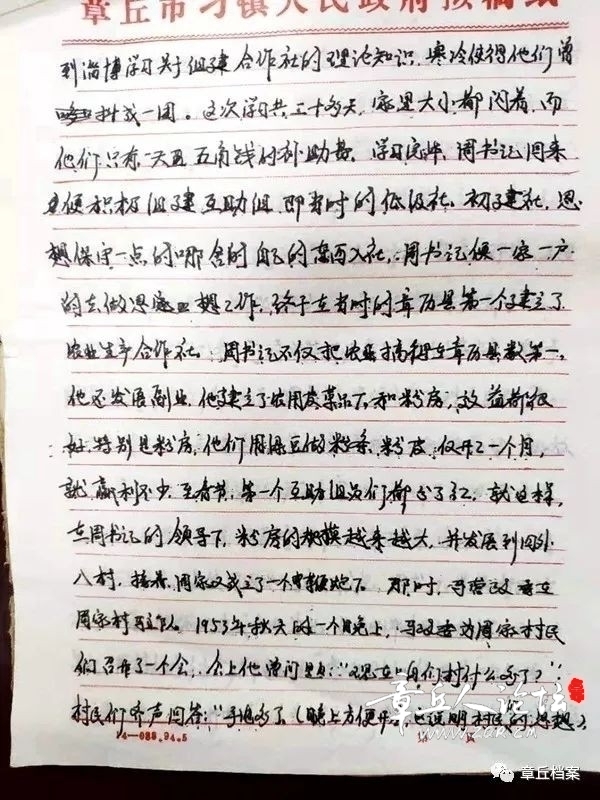 章丘市刁镇人民政府拟稿纸
到淄博学习关于组建合作社的理论知识,寒冷使得他们曾
抖成一团。这次学习共三十多天,家里大小都闪着,而
他们只有一天五角钱的补助费。学习完毕,周书记回来
便积极组建互助组,即当时的低级社。初建社,思
想保守一点的哪舍的自己的东西入社,周书记便一家一户
的去做思想工作,终于在当时的章历县第一个建立了
农业生产合作社。周书记不仅把农业搞得在章历县数第一,
他还发展副业,他建立了农用炭药品厂和粉房,效益都很
好,特别是粉房,他们用绿豆做粉条、粉皮,仅开二个月,
就赢利不少,至春节,第一个互助组员们都分了红。就这样,
在周书记的领导下,粉房的规模越来越大,并发展到周外
八村,接着,周家又成立了一个鞭炮厂。那时,
周家村驻队。1953年秋天的一个晚上,为周家村民
们召开了一个会,会上他曾问题:“现在咱们村什么多了?”
村民们齐声回答:“手电多了(晚上方便开,也说明村民的思想
14-088.94.5
章丘人论坛
章丘档案